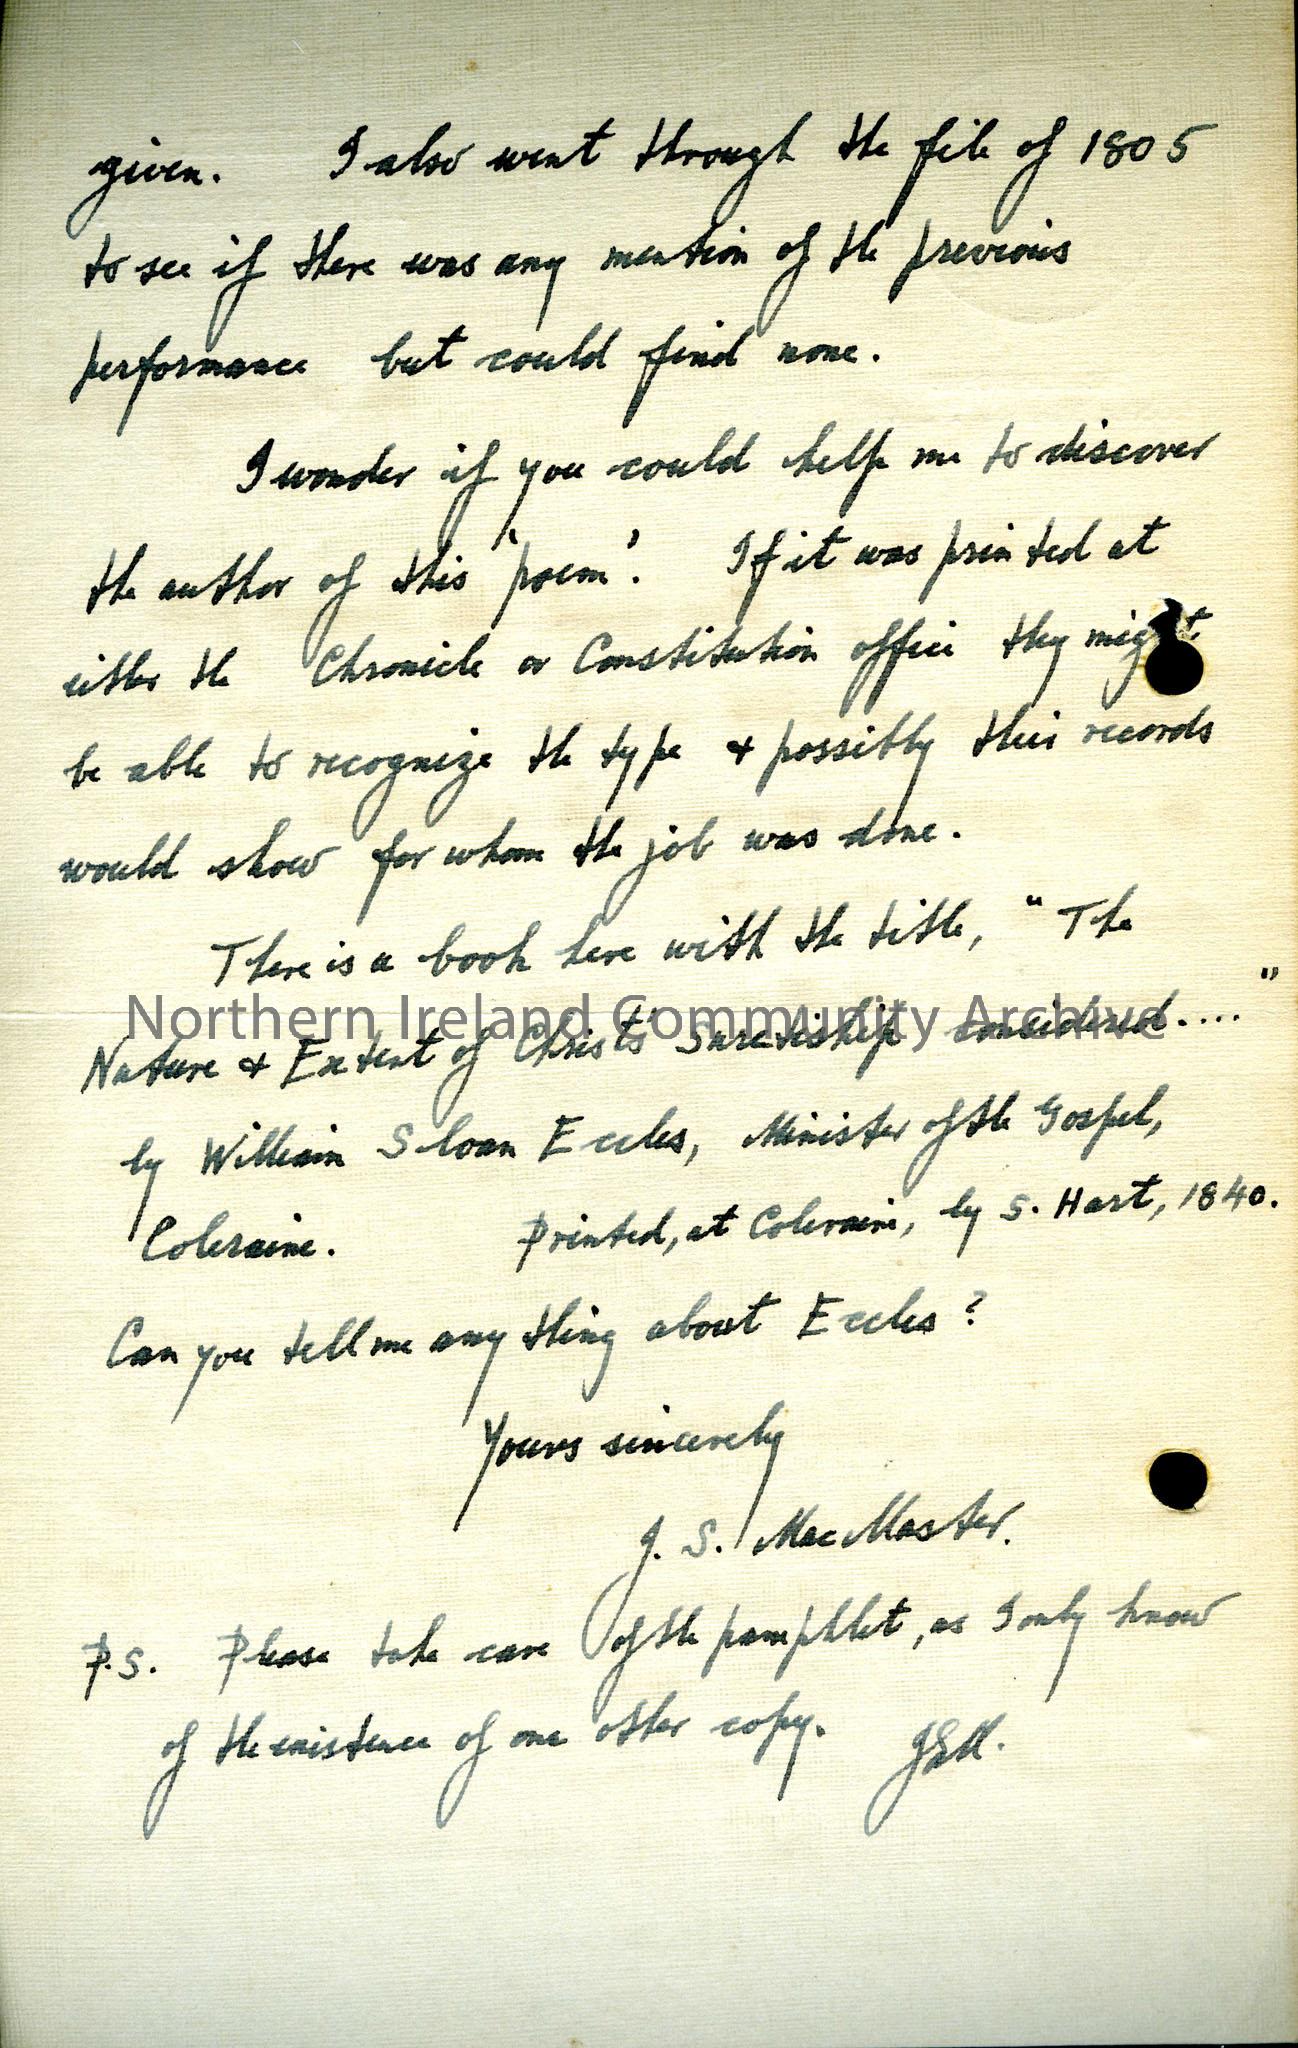 given. I also went through the file of 1805
to see if there was any mention of the previous
performance but could find none.
I wonder if you could help me to discover
the author of this 'poem'. If it was printed at
either the Chronicle or Constitution office they might
be able to recognize the type & possibly their records
would show for whom the job was done.
There is a book here with the title, " The
Nature & Extent of Christ's Suretiship considered...."
Northern Ireland Community Archive
by William Sloan Eccles, Minister of the Gospel,
Coleraine. Printed, at Coleraine, by S. Hart, 1840.
Can you tell me any thing about Eccles?
Yours sincerely
J. S. MacMaster.
P.S. Please take care of the pamphlet, as I only know
of the existence of one other copy. JSM.